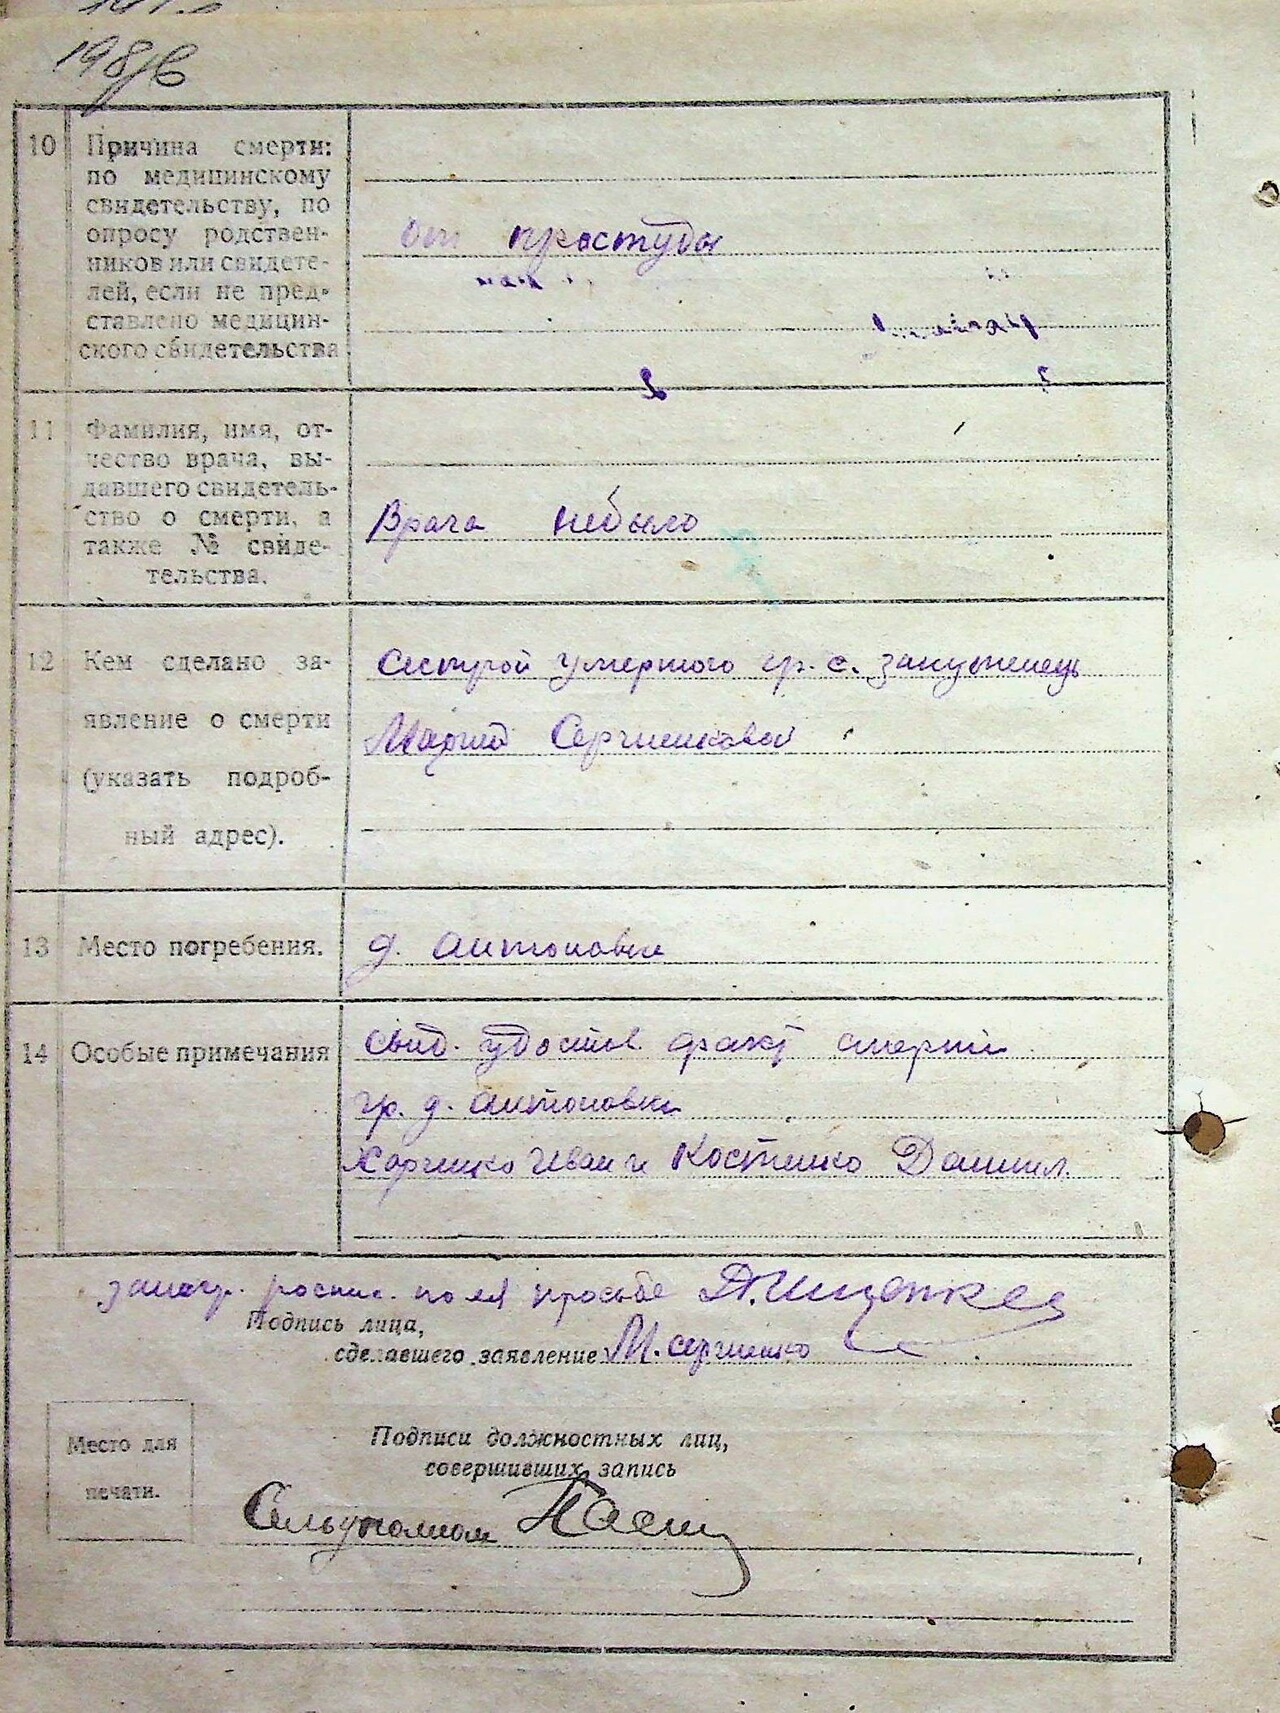 198/в
10 Причина смерти:
по медицинскому
свидетельству, по
опросу родствен-
ников или свидете-
лей, если не пред-
ставлено медицин-
ского свидетельства
от простуды
11 Фамилия, имя, от-
чество врача, вы-
давшего свидетель-
ство о смерти, а
также № свиде-
тельства.
Врача небыло
12 Кем сделано за-
явление о смерти
(указать подроб-
ный адрес).
Сестрой умершого гр. с.
Марией Сергиенковой
13 Место погребения.
д. Антоновка
14 Особые примечания
Свид. удостов. факт смерти
гр. д. Антоновки
Харченко Иван и Костенко Даниил.
роспис. по ея просьбе Д. Ищенко
Подпись лица,
сделавшего заявление М. Сергиенко
Место для
печати.
Подписи должностных лиц,
совершивших запись